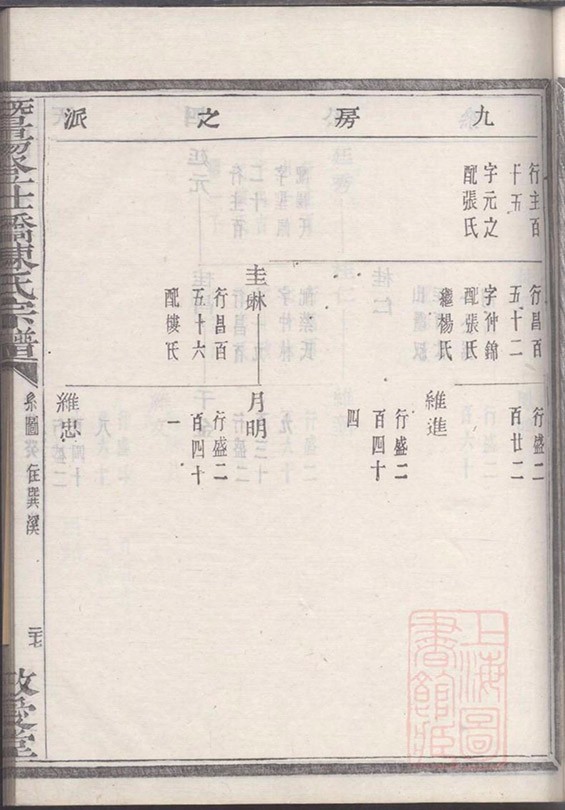 九房之派
行主百
十五
字元之
配張氏
行昌百
五十二
字仲錦
配張氏
繼楊氏
圭琳
行昌百
五十六
配樓氏
行盛二
百廿二
維進
行盛二
百四十
四
月明
行盛二
百四十
一
維忠
陳氏宗譜
系圖
二十七
敬愛堂
上海圖
書館藏